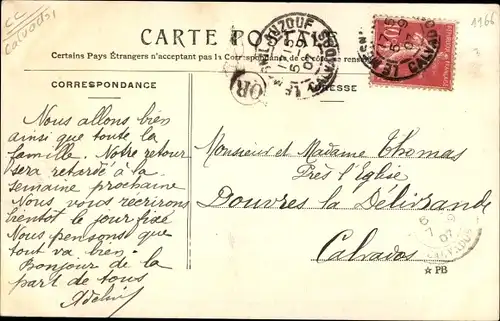 CC
Calvados
1166
CARTE POSTALE
Certains Pays Étrangers n'acceptant pas la Correspondance de ce côté
CORRESPONDANCE
ADRESSE
OR
CALVADOS
Nous allons bien
ainsi que toute la
famille. Notre retour
sera retardé à la
semaine prochaine
Nous vous récrirons
bientôt le jour fixé
Nous pensons que
tout va bien.
Bonjour de la
part de tous
Monsieur et Madame Thomas
Près l'Eglise
Douvres la Délivrande
Calvados
★ PB